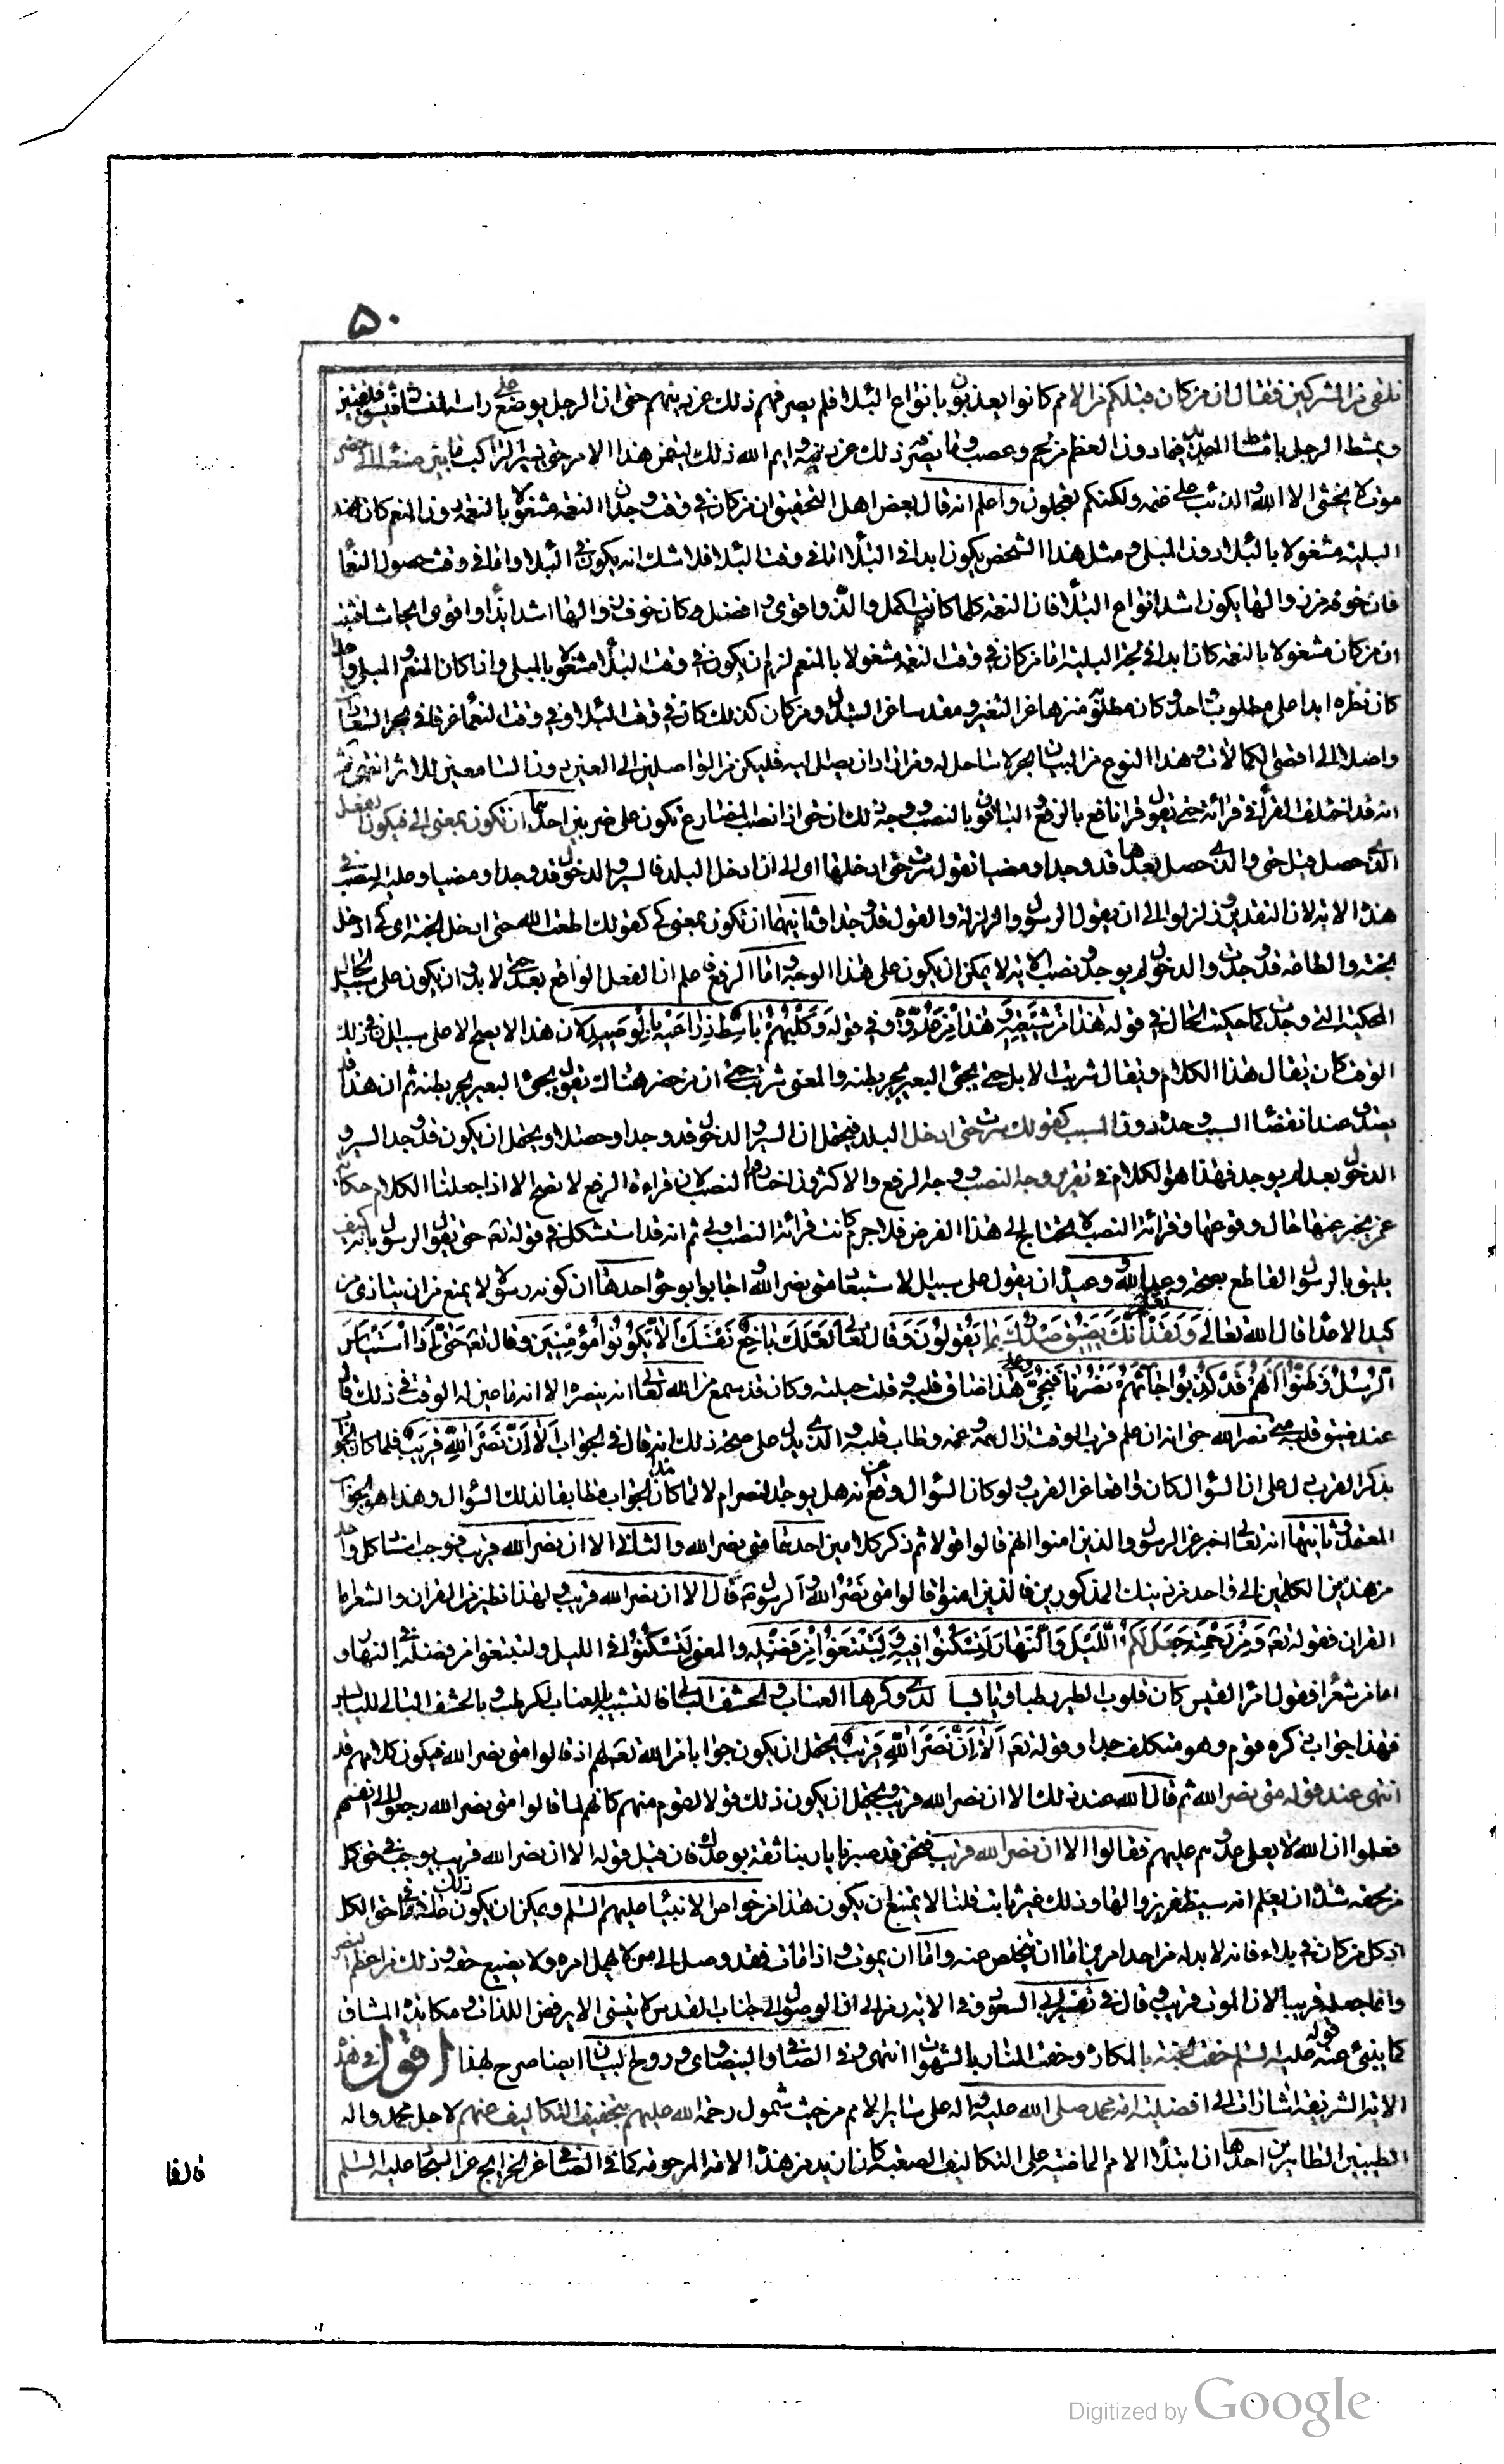 ۵۰
نلقى من المشركين فقال ان من كان قبلكم من الامم كانوا يعذبون بانواع البلاء فلم يصرفهم ذلك عن دينهم حتى ان الرجل يوضع على راسه المنشار فيشق فلقتين
ويمشط الرجل بامشاط الحديد فيما دون العظم من لحم وعصب وما يصرفه ذلك عن دينه وايم الله ذلك ليتمن هذا الامر حتى يسير الراكب ما بين صنعاء الى حضر
موت لا يخشى الا الله والذئب على غنمه ولكنكم تعجلون واعلم انه قال بعض اهل التحقيق ان من كان في وقت وجدان النعمة مشغولا بالنعمة دون المنعم كان عند
البلية مشغولا بالبلاء دون المبلى ومثل هذا الشخص يكون ابدا في البلاء اما في وقت البلاء فلا شك انه يكون في البلاء واما في وقت حصول النعماء
فان خوفه من زوالها يكون اشد انواع البلاء فان النعمة كلما كانت اكمل والذ واقوى وافضل كان خوف زوالها اشد ايذاء واقوى ايحاشا فثبت
ان من كان مشغولا بالنعمة كان ابدا في بحر البلية اما من كان في وقت النعمة مشغولا بالمنعم لزم ان يكون في وقت البلاء مشغولا بالمبلى واذا كان المنعم والمبلى واحدا
كان نظره ابدا على مطلوب واحد وكان مطلوبه منزها عن التغير ومقدسا عن التبدل ومن كان كذلك كان في وقت البلاء وفي وقت النعماء غرقا في بحر السعادات
واصلا الى اقصى الكمالات وهذا النوع من البيان بحر لا ساحل له ومن اراد ان يصل اليه فليكن من الواصلين الى العين دون السامعين للاثر انتهى ثم
انه قد اختلف القراء في قرائة حتى يقول قرا نافع بالرفع والباقون بالنصب ووجه ذلك ان حتى اذا نصب المضارع تكون على ضربين احدهما ان تكون بمعنى الى فيكون الفعل
الذي حصل قبل حتى والذي حصل بعدها قد وجدا ومضيا تقول سرت حتى ادخلها اى الى ان ادخل البلد فالسير والدخول قد وجدا ومضيا وعليه النصب في
هذه الاية لان التقدير وزلزلوا الى ان يقول الرسول والزلزلة والقول قد وجدا وثانيهما ان تكون بمعنى كى كقولك اطعت الله حتى ادخل الجنة اى كى ادخل
الجنة والطاعة قد وجدت والدخول لم يوجد ونصب الاية لا يمكن ان يكون على هذا الوجه واما الرفع فاعلم ان الفعل الواقع بعد حتى لا بد ان يكون على سبيل الحال
المحكية التي وجدت كما حكيت الحال في قوله هذا من شيعته وهذا من عدوه وفي قوله وكلبهم باسط ذراعيه بالوصيد لان هذا لا يصح الا على سبيل ان في ذلك
الوقت كان يقال هذا الكلام ويقال شربت الابل حتى يجئ البعير يجر بطنه والمعنى شربت حتى ان من حضر هناك يقول يجئ البعير يجر بطنه ثم ان هذا قد
يصدق عند انقضاء السبب وحده دون المسبب كقولك سرت حتى ادخل البلد فيحتمل ان السير والدخول قد وجدا وحصلا ويحتمل ان يكون قد وجد السير و
الدخول بعد لم يوجد فهذا هو الكلام في تقرير وجه النصب ووجه الرفع والاكثرون اختاروا النصب لان قراءة الرفع لا تصح الا اذا جعلنا الكلام حكاية
عمن يخبر عنها حال وقوعها وقرائة النصب لا يحتاج الى هذا الفرض فلا جرم كانت قرائة النصب اولى ثم انه قد استشكل في قوله تعه حتى يقول الرسول بانه كيف
يليق بالرسول القاطع بصحة وعد الله ووعيده ان يقول على سبيل الاستبعاد متى نصر الله واجابوا بوجوه احدها ان كونه رسولا لا يمنع من ان يتاذى من
كيد الاعداء قال الله تعالى ولقد نعلم انك يضيق صدرك بما يقولون وقال تعالى لعلك باخع نفسك الا يكونوا مؤمنين وقال تعه حتى اذا استيأس
الرسل وظنوا انهم قد كذبوا جائهم نصرنا فنجى وعلى هذا ضاق قلبه وقلت حيلته وكان قد سمع من الله تعالى انه ينصره الا انه ما عين له الوقت في ذلك قال
عند ضيق قلبه متى نصر الله حتى انه ان علم قرب الوقت ازال همه وغمه وطاب قلبه والذي يدل على صحة ذلك انه قال في الجواب الا ان نصر الله قريب فلما كان الجواب
بذكر القرب دل على ان السؤال كان واقعا عن القرب ولو كان السؤال وقع عن انه هل يوجد النصر ام لا لما كان هذا الجواب مطابقا لذلك السؤال وهذا هو الجواب
المعتمد وثانيها انه تعالى اخبر عن الرسول والذين امنوا انهم قالوا قولا ثم ذكر كلامين احدهما متى نصر الله والثاني الا ان نصر الله قريب فوجب اسناد كل واحد
من هذين الكلامين الى واحد من ذينك المذكورين فالذين امنوا قالوا متى نصر الله والرسول ص قال الا ان نصر الله قريب ولهذا نظير من القران والشعر اما
القران فقوله تعه ومن رحمته جعل لكم الليل والنهار لتسكنوا فيه ولتبتغوا من فضله والمعنى لتسكنوا في الليل ولتبتغوا من فضله في النهار و
اما من شعر فقول امرء القيس كان قلوب الطير رطبا ويابسا لدى وكرها العناب والحشف البالى فالتشبيه بالعناب للرطب وبالحشف البالى لليابس
فهذا جواب ذكره قوم وهو متكلف جدا وقوله تعه الا ان نصر الله قريب يحتمل ان يكون جوابا من الله تعه لهم اذ قالوا متى نصر الله فيكون كلامهم قد
انتهى عند قوله متى نصر الله ثم قال الله عند ذلك الا ان نصر الله قريب ويحتمل ان يكون ذلك قولا لقوم منهم كانهم لما قالوا متى نصر الله رجعوا الى انفسهم
فعلموا ان الله لا يعلى عدوهم عليهم فقالوا الا ان نصر الله قريب فنحن قد صبرنا يا ربنا ثقة بوعدك فان قيل قوله الا ان نصر الله قريب يوجب في حق كل
من لحقه شدة ان يعلم انه سيظفر بزوالها وذلك غير ثابت قلنا لا يمتنع ان يكون هذا من خواص الانبياء عليهم السلم ويمكن ان يكون ذلك عاما في حق الكل
اذ كل من كان في بلاء فانه لا بد له من احد امرين اما ان يتخلص عنه واما ان يموت واذا مات فقد وصل الى من لا يهمل امره ولا يضيع حقه وذلك من اعظم النصر
وانما جعله قريبا لان الموت قريب وقال في تفسير ابى السعود وفي الاية رمز الى ان الوصول الى جناب القدس لا يتسنى الا برفض اللذات ومكابدة المشاق
كما ينبئ عنه قوله عليه السلم حفت الجنة بالمكاره وحفت النار بالشهوات انتهى وفى الصافى والبيضاوى وروح البيان ايضا صرح بهذا اقول في هذه
الاية الشريفة اشارات الى افضلية امة محمد صلى الله عليه واله على سائر الامم من حيث شمول رحمة الله عليهم بتخفيف التكاليف عنهم لاجل محمد واله
الطيبين الطاهرين احدها ان ابتلاء الامم الماضية على التكاليف الصعبة كان ازيد من هذه الامة المرحومة كما في الصافى عن الخرايج عن السجاد عليه السلم
قال فما